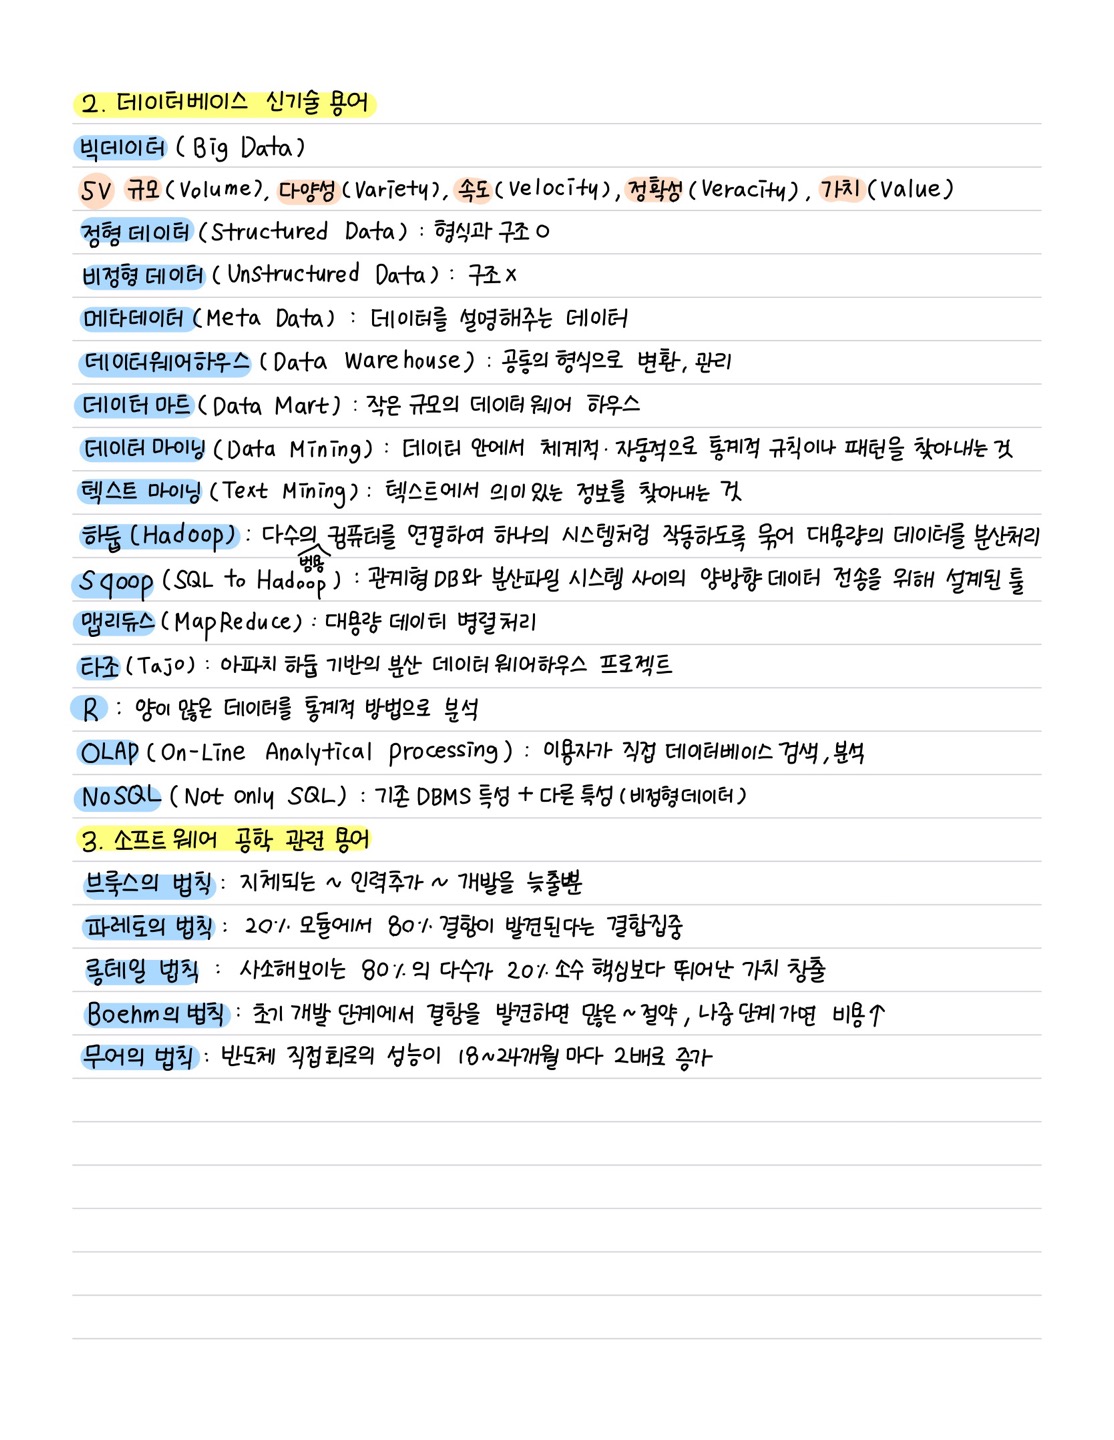 2. 데이터베이스 신기술 용어
빅데이터 (Big Data)
5V 규모(Volume), 다양성(Variety), 속도(Velocity), 정확성(Veracity), 가치(Value)
정형 데이터 (Structured Data) : 형식과 구조 O
비정형 데이터 (Unstructured Data) : 구조 X
메타데이터 (Meta Data) : 데이터를 설명해주는 데이터
데이터웨어하우스 (Data Warehouse) : 공통의 형식으로 변환, 관리
데이터 마트 (Data Mart) : 작은 규모의 데이터 웨어 하우스
데이터 마이닝 (Data Mining) : 데이터 안에서 체계적·자동적으로 통계적 규칙이나 패턴을 찾아내는 것
텍스트 마이닝 (Text Mining) : 텍스트에서 의미있는 정보를 찾아내는 것
하둡 (Hadoop) : 다수의 범용 컴퓨터를 연결하여 하나의 시스템처럼 작동하도록 묶어 대용량의 데이터를 분산처리
Sqoop (SQL to Hadoop) : 관계형 DB와 분산파일 시스템 사이의 양방향 데이터 전송을 위해 설계된 툴
맵리듀스 (MapReduce) : 대용량 데이터 병렬처리
타조 (Tajo) : 아파치 하둡 기반의 분산 데이터 웨어하우스 프로젝트
R : 양이 많은 데이터를 통계적 방법으로 분석
OLAP (On-Line Analytical processing) : 이용자가 직접 데이터베이스 검색, 분석
NoSQL (Not only SQL) : 기존 DBMS 특성 + 다른 특성 (비정형데이터)
3. 소프트웨어 공학 관련 용어
브룩스의 법칙 : 지체되는 ~ 인력추가 ~ 개발을 늦출뿐
파레토의 법칙 : 20% 모듈에서 80% 결함이 발견된다는 결함집중
롱테일 법칙 : 사소해보이는 80%의 다수가 20% 소수 핵심보다 뛰어난 가치 창출
Boehm의 법칙 : 초기 개발 단계에서 결함을 발견하면 많은 ~ 절약, 나중단계 가면 비용↑
무어의 법칙 : 반도체 직접회로의 성능이 18~24개월 마다 2배로 증가